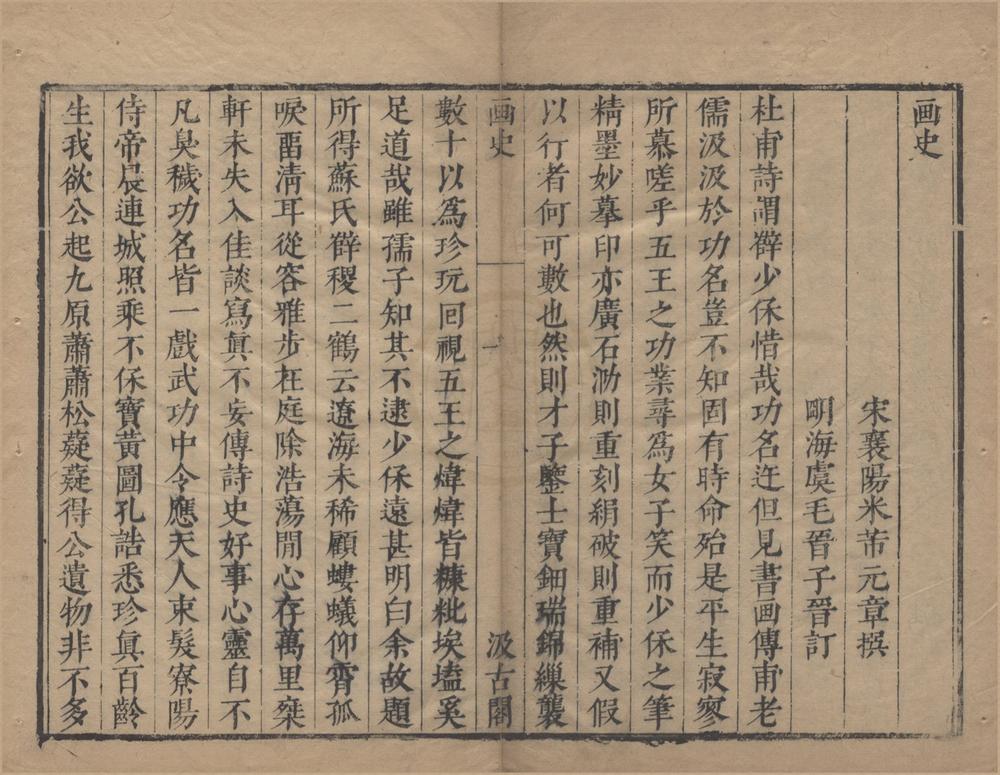 画史
宋襄陽米芾元章撰
明海虞毛晉子晉訂
杜甫詩謂薛少保惜哉功名迕但見書画傳甫老
儒汲汲於功名豈不知固有時命殆是平生寂寥
所慕嗟乎五王之功業尋為女子笑而少保之筆
精墨妙摹印亦廣石泐則重刻絹破則重補又假
以行者何可數也然則才子鑒士寶鈿瑞錦繅襲
画史 一 汲古閣
數十以為珍玩回視五王之煒煒皆糠粃埃壒奚
足道哉雖孺子知其不逮少保遠甚明白余故題
所得蘇氏薛稷二鶴云遼海未稀顧螻蟻仰霄孤
唳留清耳從容雅步在庭除浩蕩閒心存萬里乘
軒未失入佳談寫真不妄傳詩史好事心靈自不
凡臭穢功名皆一戲武功中令應天人束髮寮陽
侍帝晨連城照乘不保寶黃圖孔誥悉珍真百齡
生我欲公起九原蕭蕭松薿薿得公遺物非不多